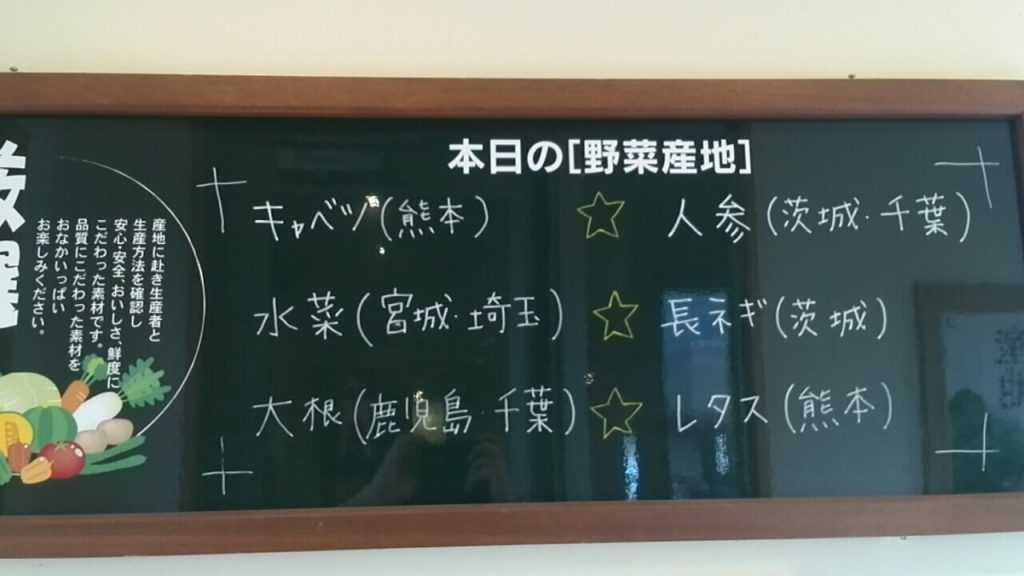 本日の[野菜産地]
キャベツ(熊本)
人参(茨城・千葉)
水菜(宮城・埼玉)
長ネギ(茨城)
大根(鹿児島・千葉)
レタス(熊本)
産地に赴き生産者と
生産方法を確認し
安心・安全、おいしさ、鮮度に
こだわった素材です。
品質にこだわった素材を
おなかいっぱい
お楽しみください。